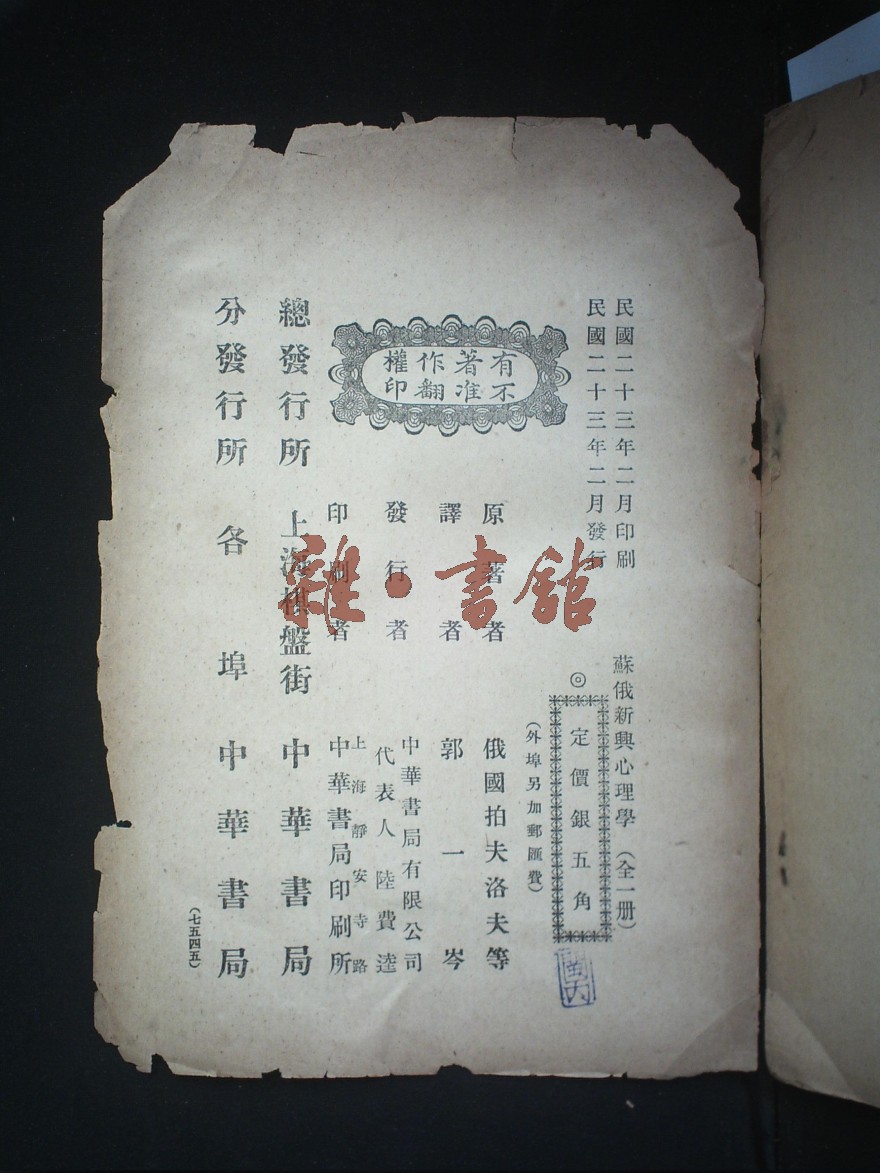 民國二十三年二月印刷
民國二十三年二月發行
蘇俄新興心理學（全一册）
◎
定價銀五角
（外埠另加郵匯費）
有著作權
不准翻印
原著者 俄國拍夫洛夫等
譯者 郭一岑
發行者 中華書局有限公司
代表人 陸費逵
印刷者 上海靜安寺路
中華書局印刷所
總發行所 上海棋盤街 中華書局
分發行所 各埠 中華書局
（七五四五）
雜·書館